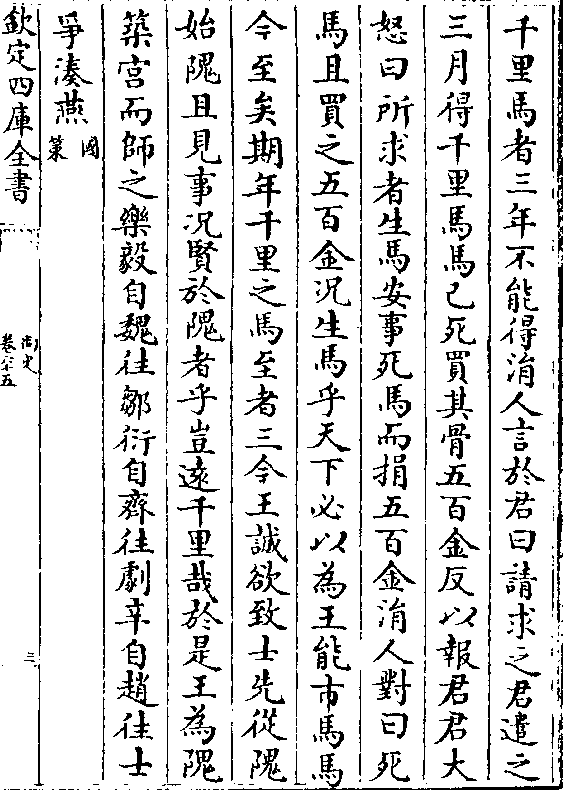 千里馬者三年不能得涓人言於君曰請求之君遣之
三月得千里馬馬已死買其骨五百金反以報君君大
怒曰所求者生馬安事死馬而捐五百金涓人對曰死
馬且買之五百金況生馬乎天下必以為王能市馬馬
今至矣期年千里之馬至者三今王誠欲致士先從隗
始隗且見事況賢於隗者乎豈遠千里哉於是王為隗
築宫而師之樂毅自魏往鄒衍自齊往劇辛自趙往士
爭湊燕國策
欽定四庫全書
卷六十五
三